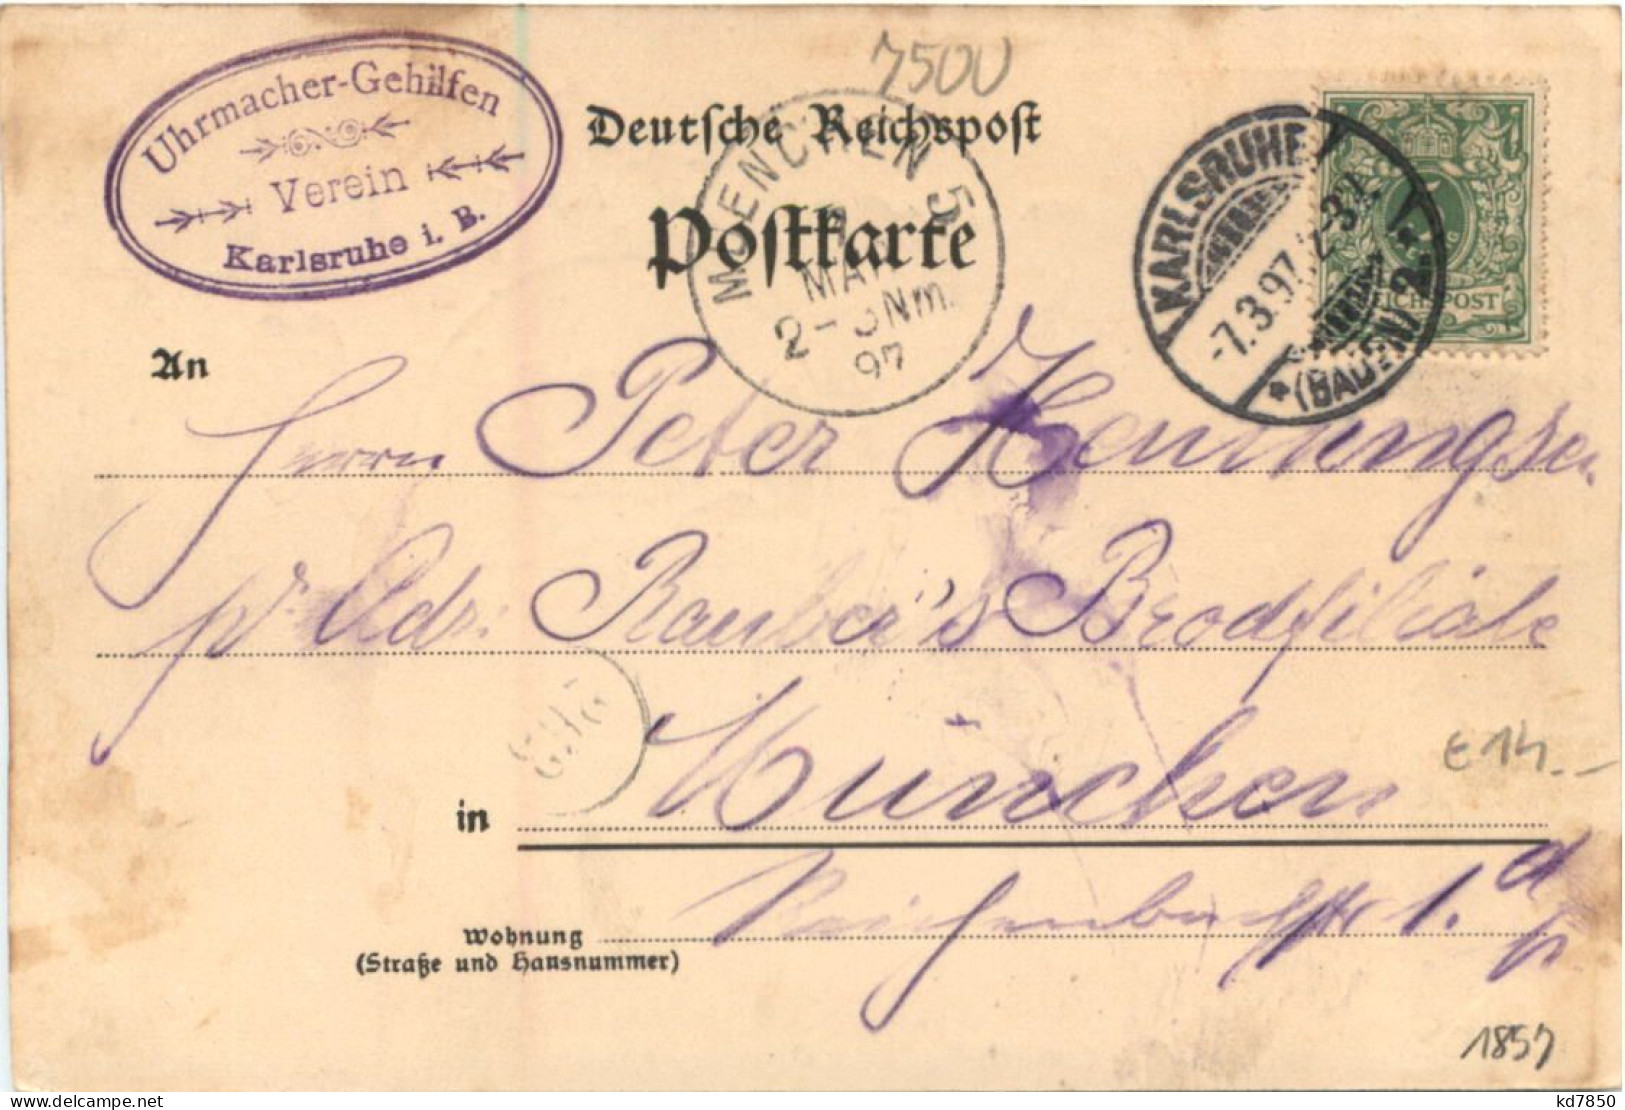 7500
Uhrmacher-Gehilfen
Verein
Karlsruhe i. B.
Deutsche Reichspost
Postkarte
MUENCHEN 5
MAR
2-3 Nm.
97
KARLSRUHE
-7.3.97.
* (BADEN) 2. *
REICHSPOST
An
Herrn Peter
pr Adr: Rauber's Brodfiliale
in München
€ 14.-
Wohnung
(Straße und Hausnummer)
1857
kd7850